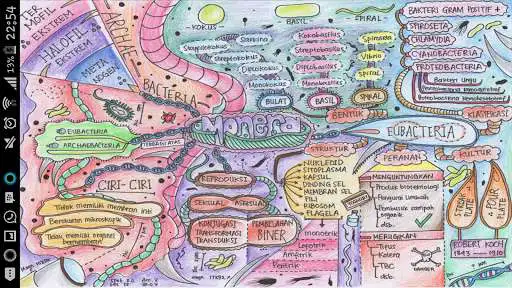 22:54
19%
TERMOFIL
EKSTREM
HALOFIL
EKSTREM
METANOGEN
ARCHAE
BACTERIA
KOKUS
Sarsina
Streptokokus
Diplokokus
Monokokus
BULAT
BASIL
Streptobasilus
Diplobasilus
Monobasilus
BASIL
SPIRAL
Vibrio
Spiral
SPIRAL
BENTUK
BAKTERI GRAM POSITIF +
SPIROSETA
CHLAMYDIA
CYANOBACTERIA
PROTEOBACTERIA
Bakteri Ungu
KLASIFIKASI
Monera
EUBACTERIA
KULTUR
EUBACTERIA
ARCHAEBACTERIA
TERBAGI ATAS
CIRI-CIRI
Tidak memiliki membran inti
Berukuran mikroskopik
Tidak memiliki organel
bermembran
REPRODUKSI
SEKSUAL
ASEKSUAL
KONJUGASI
TRANSFORMASI
TRANSDUKSI
PEMBELAHAN
BINER
STRUKTUR
NUKLEOID
SITOPLASMA
KAPSUL
DINDING SEL
MEMBRAN SEL
PILI
RIBOSOM
FLAGELA
monotrik
Lopotrik
Amfitrik
Peritrik
PERANAN
MENGUNTUNGKAN
Produk bioteknologi
Pengurai limbah
Pengurai sampah
organik
dsb.
MERUGIKAN
Tifus
Kolera
TBC
dsb.
DANGER
STREAK PLATE
POUR PLATE
ROBERT KOCH
1843 — 1910